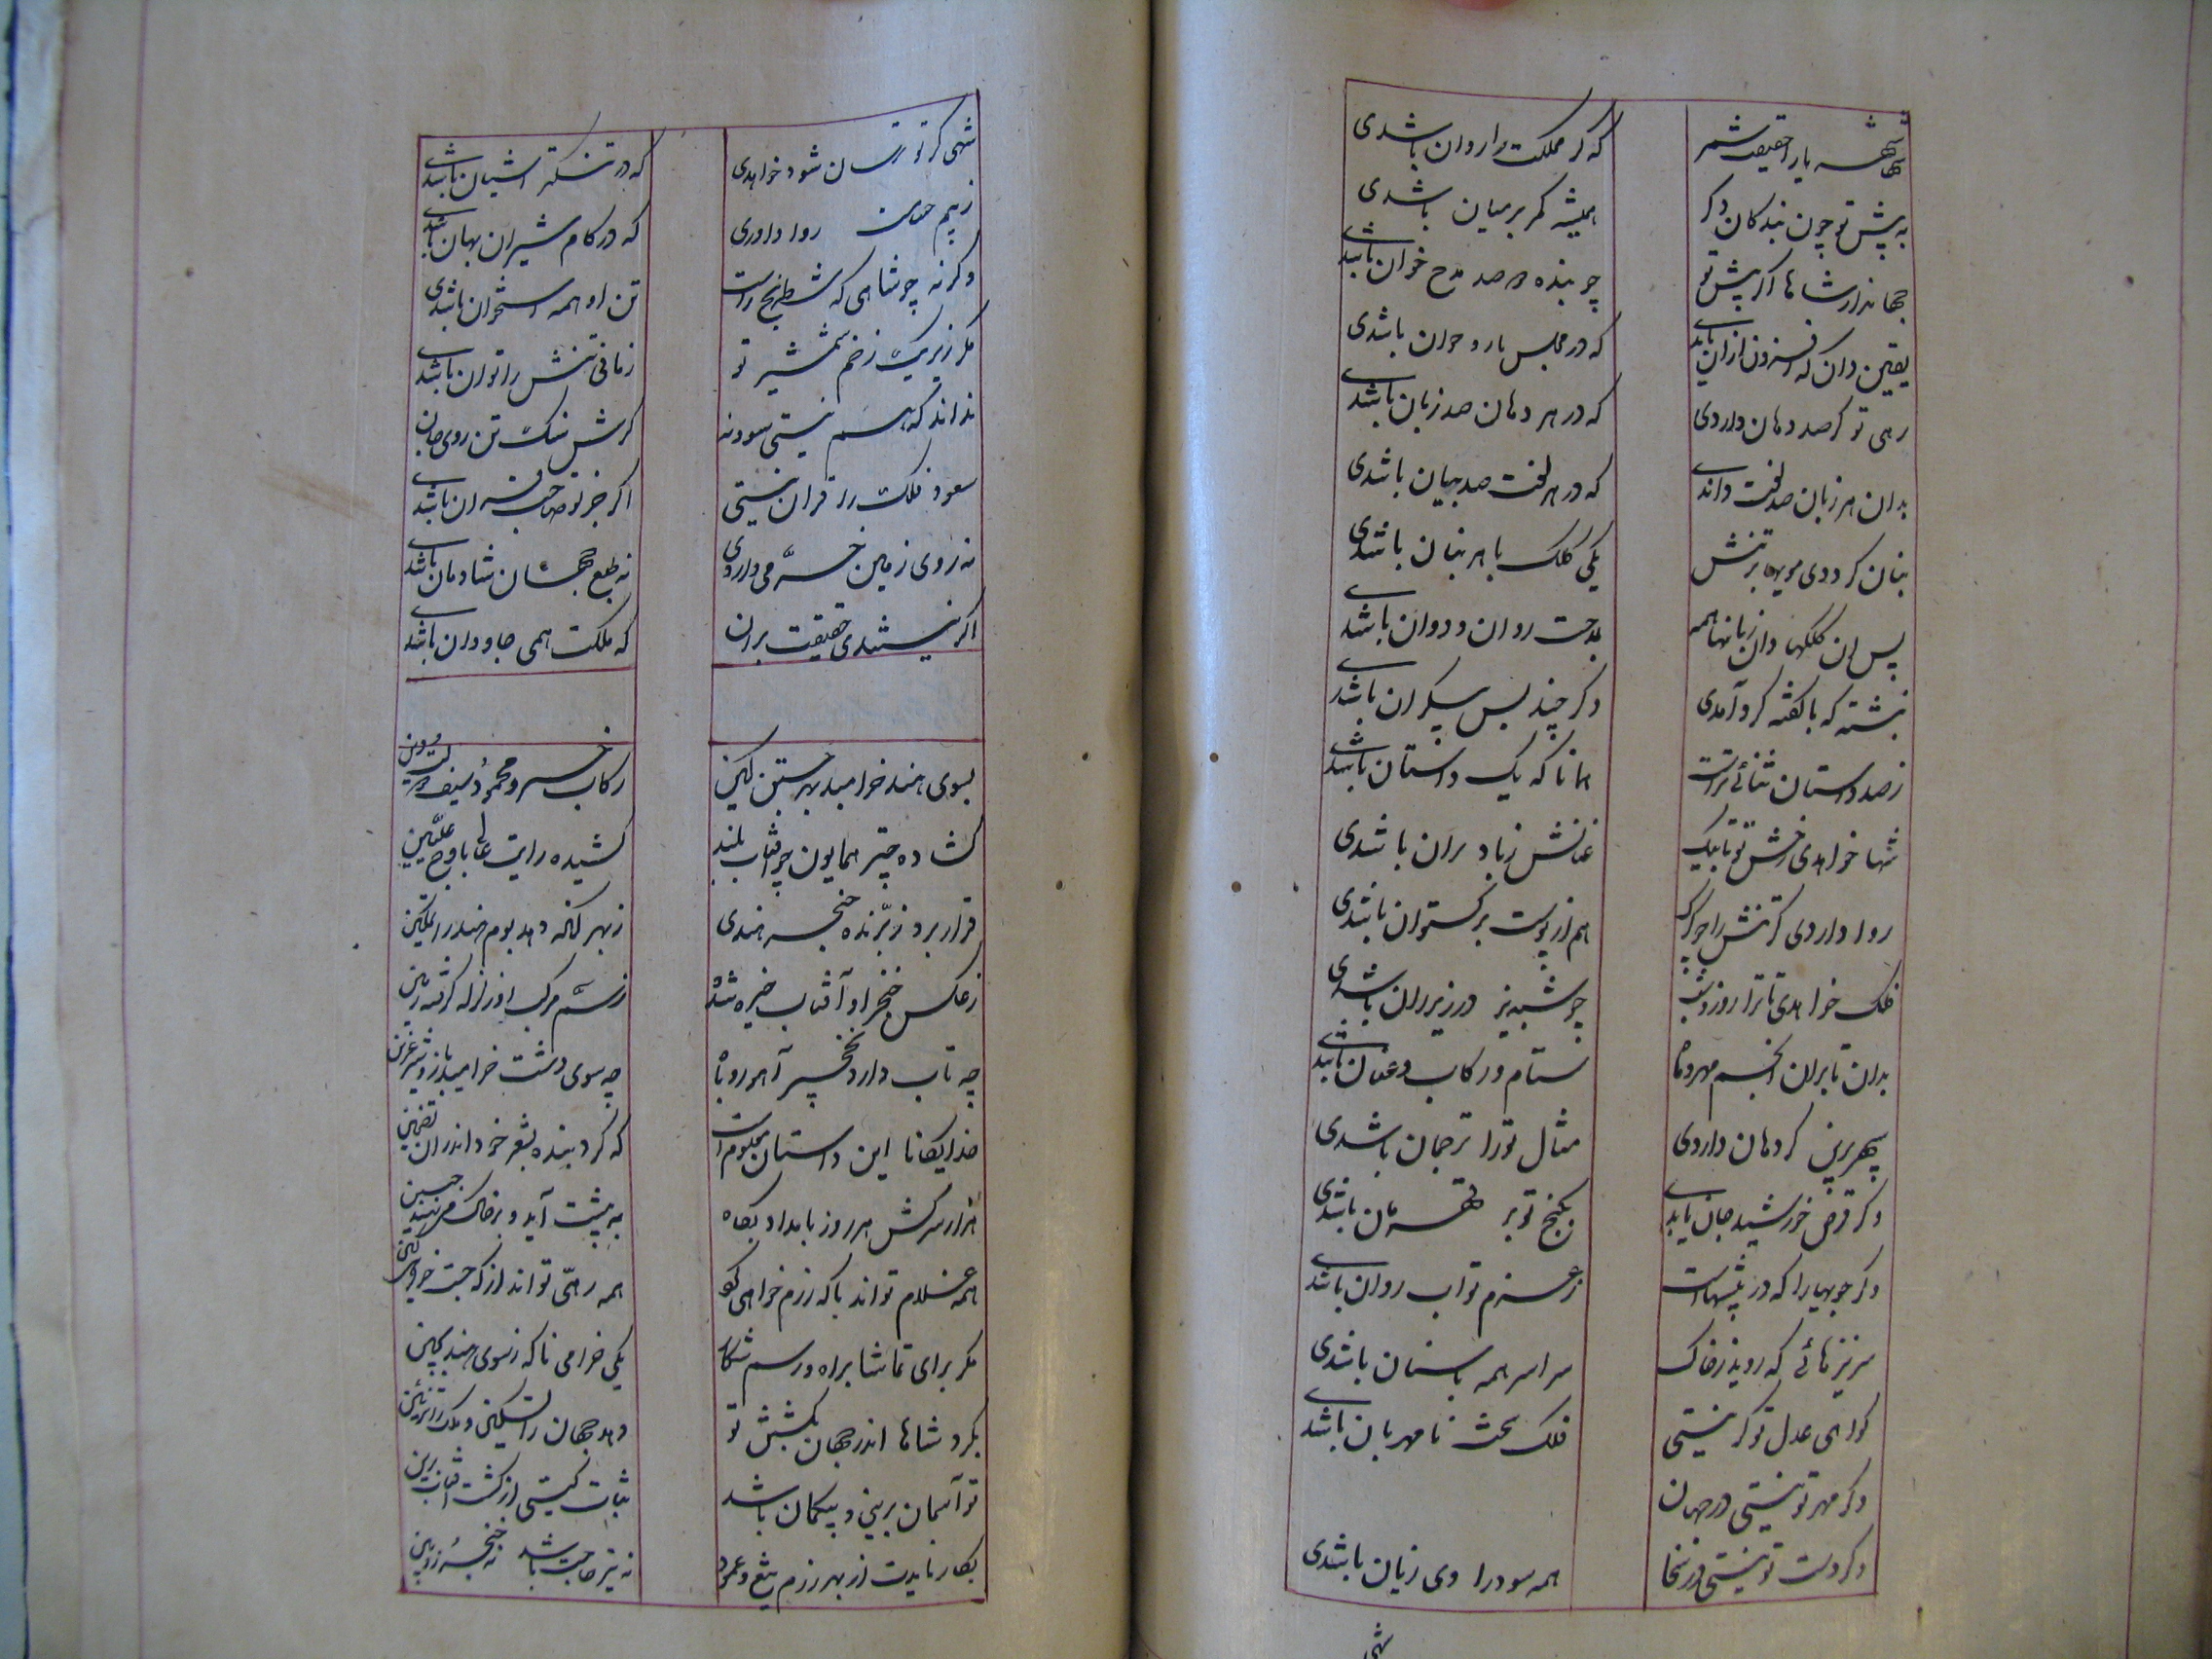 شهنشه یار احقیقت شمر
که از مملکت را روان باشدی
به پیش تو چون بندکان دکر
همیشه کمر بر میان باشدی
جهاندار شاها اکر پیش تو
چو بنده دو صد مدح خوان باشدی
یقین دان که افزون از ان بایدی
که در مجلس
باشدی
رهی تو کر صد دهان داردی
که در هر دهان صد زبان باشدی
بدان هر زبان صد لغت داندی
که در هر لغت صد بیان باشدی
بنان کرددی مویها بر تنش
یکی کلک با هر بنان باشدی
پس ان کلکها وان زبانها همه
بمدحت روان و دوان باشدی
نبشته که با کفته کرد آمدی
وکر چند بس بیکران باشدی
ز صد داستان ثنائی تراست
همانا که یک داستان باشدی
شها خواهدی رخش تو تا یک
عنانش ز باد بزان باشدی
روا داردی کر تنش را چو کرک
هم از پوست برکستوان باشدی
فلک خواهدی تا ترا روز و شب
چو شبدیز در زیر ران باشدی
بدان تا بران انجم مهر و ماه
ستام و رکاب و عنان باشدی
سپهر برین کر دهان داردی
مثال تو را ترجمان باشدی
وکر قرص خورشید جان یابدی
بکنج تو بر قهرمان باشدی
وکر جویها را که در بیشهاست
ز عزم تو آب روان باشدی
سر نیزهائی که روید ز خاک
سراسر همه باسنان باشدی
کواهی عدل تو کر نیستی
فلک سخت نامهربان باشدی
وکر مهر تو نیستی در جهان
وکر دست تو نیستی در سخا
همه سود را وی زیان باشدی
شهی
شهی کز تو ترسان شود خواهدی
که در تنکتر اشیان باشدی
ز بیم
روا داردی
که در کام شیران نهان باشدی
وکرنه چو شاهی که شطرنج راست
تن او همه استخوان باشدی
مکر زیر یک زخم شمشیر تو
زمانی تنش را توان باشدی
نداند که هم نیستی سود نه
کرش ننک تن روی جان
سعود فلک را قران نیستی
اکر جز تو صاحب قران باشدی
نه روی زمین خرمی داردی
نه طبع جهان شادمان باشدی
اکر نیستدی حقیقت بر ان
که ملکت همی جاودان باشدی
بسوی هند خرامید بهر جستن کین
رکاب خسرو محمود سیف دولت و دین
کشاده چتر همایون چو آفتاب بلند
کشیده رایت عالی باوج علیین
قرار برد ز برنده خنجر هندی
ز بهر آنکه دهد بوم هند را تمکین
ز عکس خنجر او آفتاب خیره شده
ز سم مرکب او زلزله کرفته زمین
چه تاب دارد نخجیر آهو روباه
چه سوی دشت خرامید باز و شیر عرین
خدایکانا این داستان معلوم است
که کرد بنده بشعر خود اندران تضمین
هزار سرکش هر روز بامداد پکاه
به پیشت آید و بر خاک می نهند جبین
همه غلام تواند با که رزم خواهی کو
همه رهی تواند از که جست خواهی کین
مکر برای تماشا براه و رسم شکار
یکی خرامی ناکه ز سوی هند بچین
بکرد شاها اندر جهان بکشش تو
دهد جهان را تسکین و ملک را تزیین
تو آسمان برینی و بیکمان باشد
ثبات کیتی از کشت آسمان برین
بکار نایدت از بهر رزم تیغ و عمود
نه نیز حاجت باشد به خنجر و زوبین